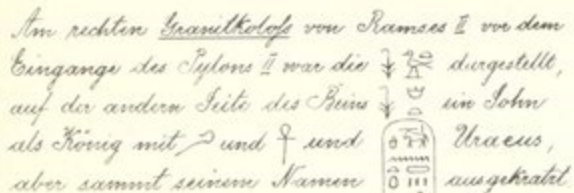 Am rechten Granitkoloſs von Ramses II vor dem
Eingange des Pylons II war die dargestellt,
auf der andern Seite des Beins ein Sohn
als König mit und und Uraeus,
aber sammt seinem Namen ausgekratzt